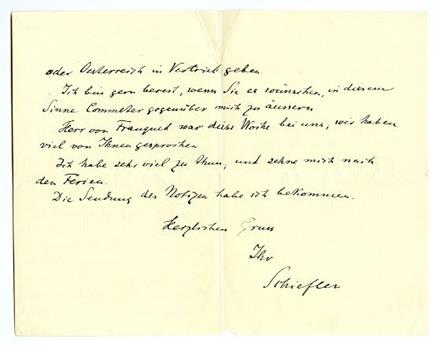 oder Oesterreich in Vertrieb geben.
Ich bin gern bereit, wenn Sie es wünschen, in diesem
Sinne Commeter gegenüber mich zu äussern.
Herr von Franquet war diese Woche bei uns, wir haben
viel von Ihnen gesprochen
Ich habe sehr viel zu thun, und sehne mich nach
den Ferien.
Die Sendung des Notizen habe ich bekommen.
Herzlichen Gruss
Ihr
Schiefler